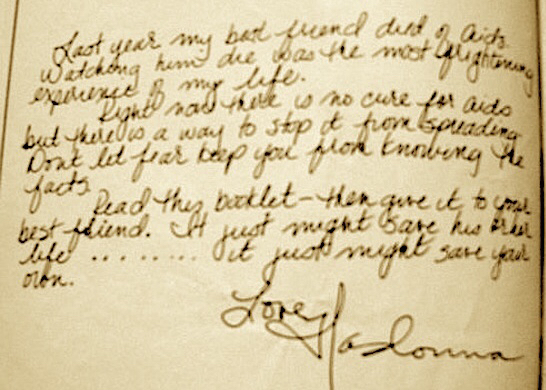 Last year my best friend died of Aids.
Watching him die was the most frightening
experience of my life.
Right now there is no cure for aids
but there is a way to stop it from spreading
Dont let fear keep you from knowing the
facts.
Read this booklet - then give it to your
best friend. It just might save his or her
life ........ it just might save your
own.
Love Madonna